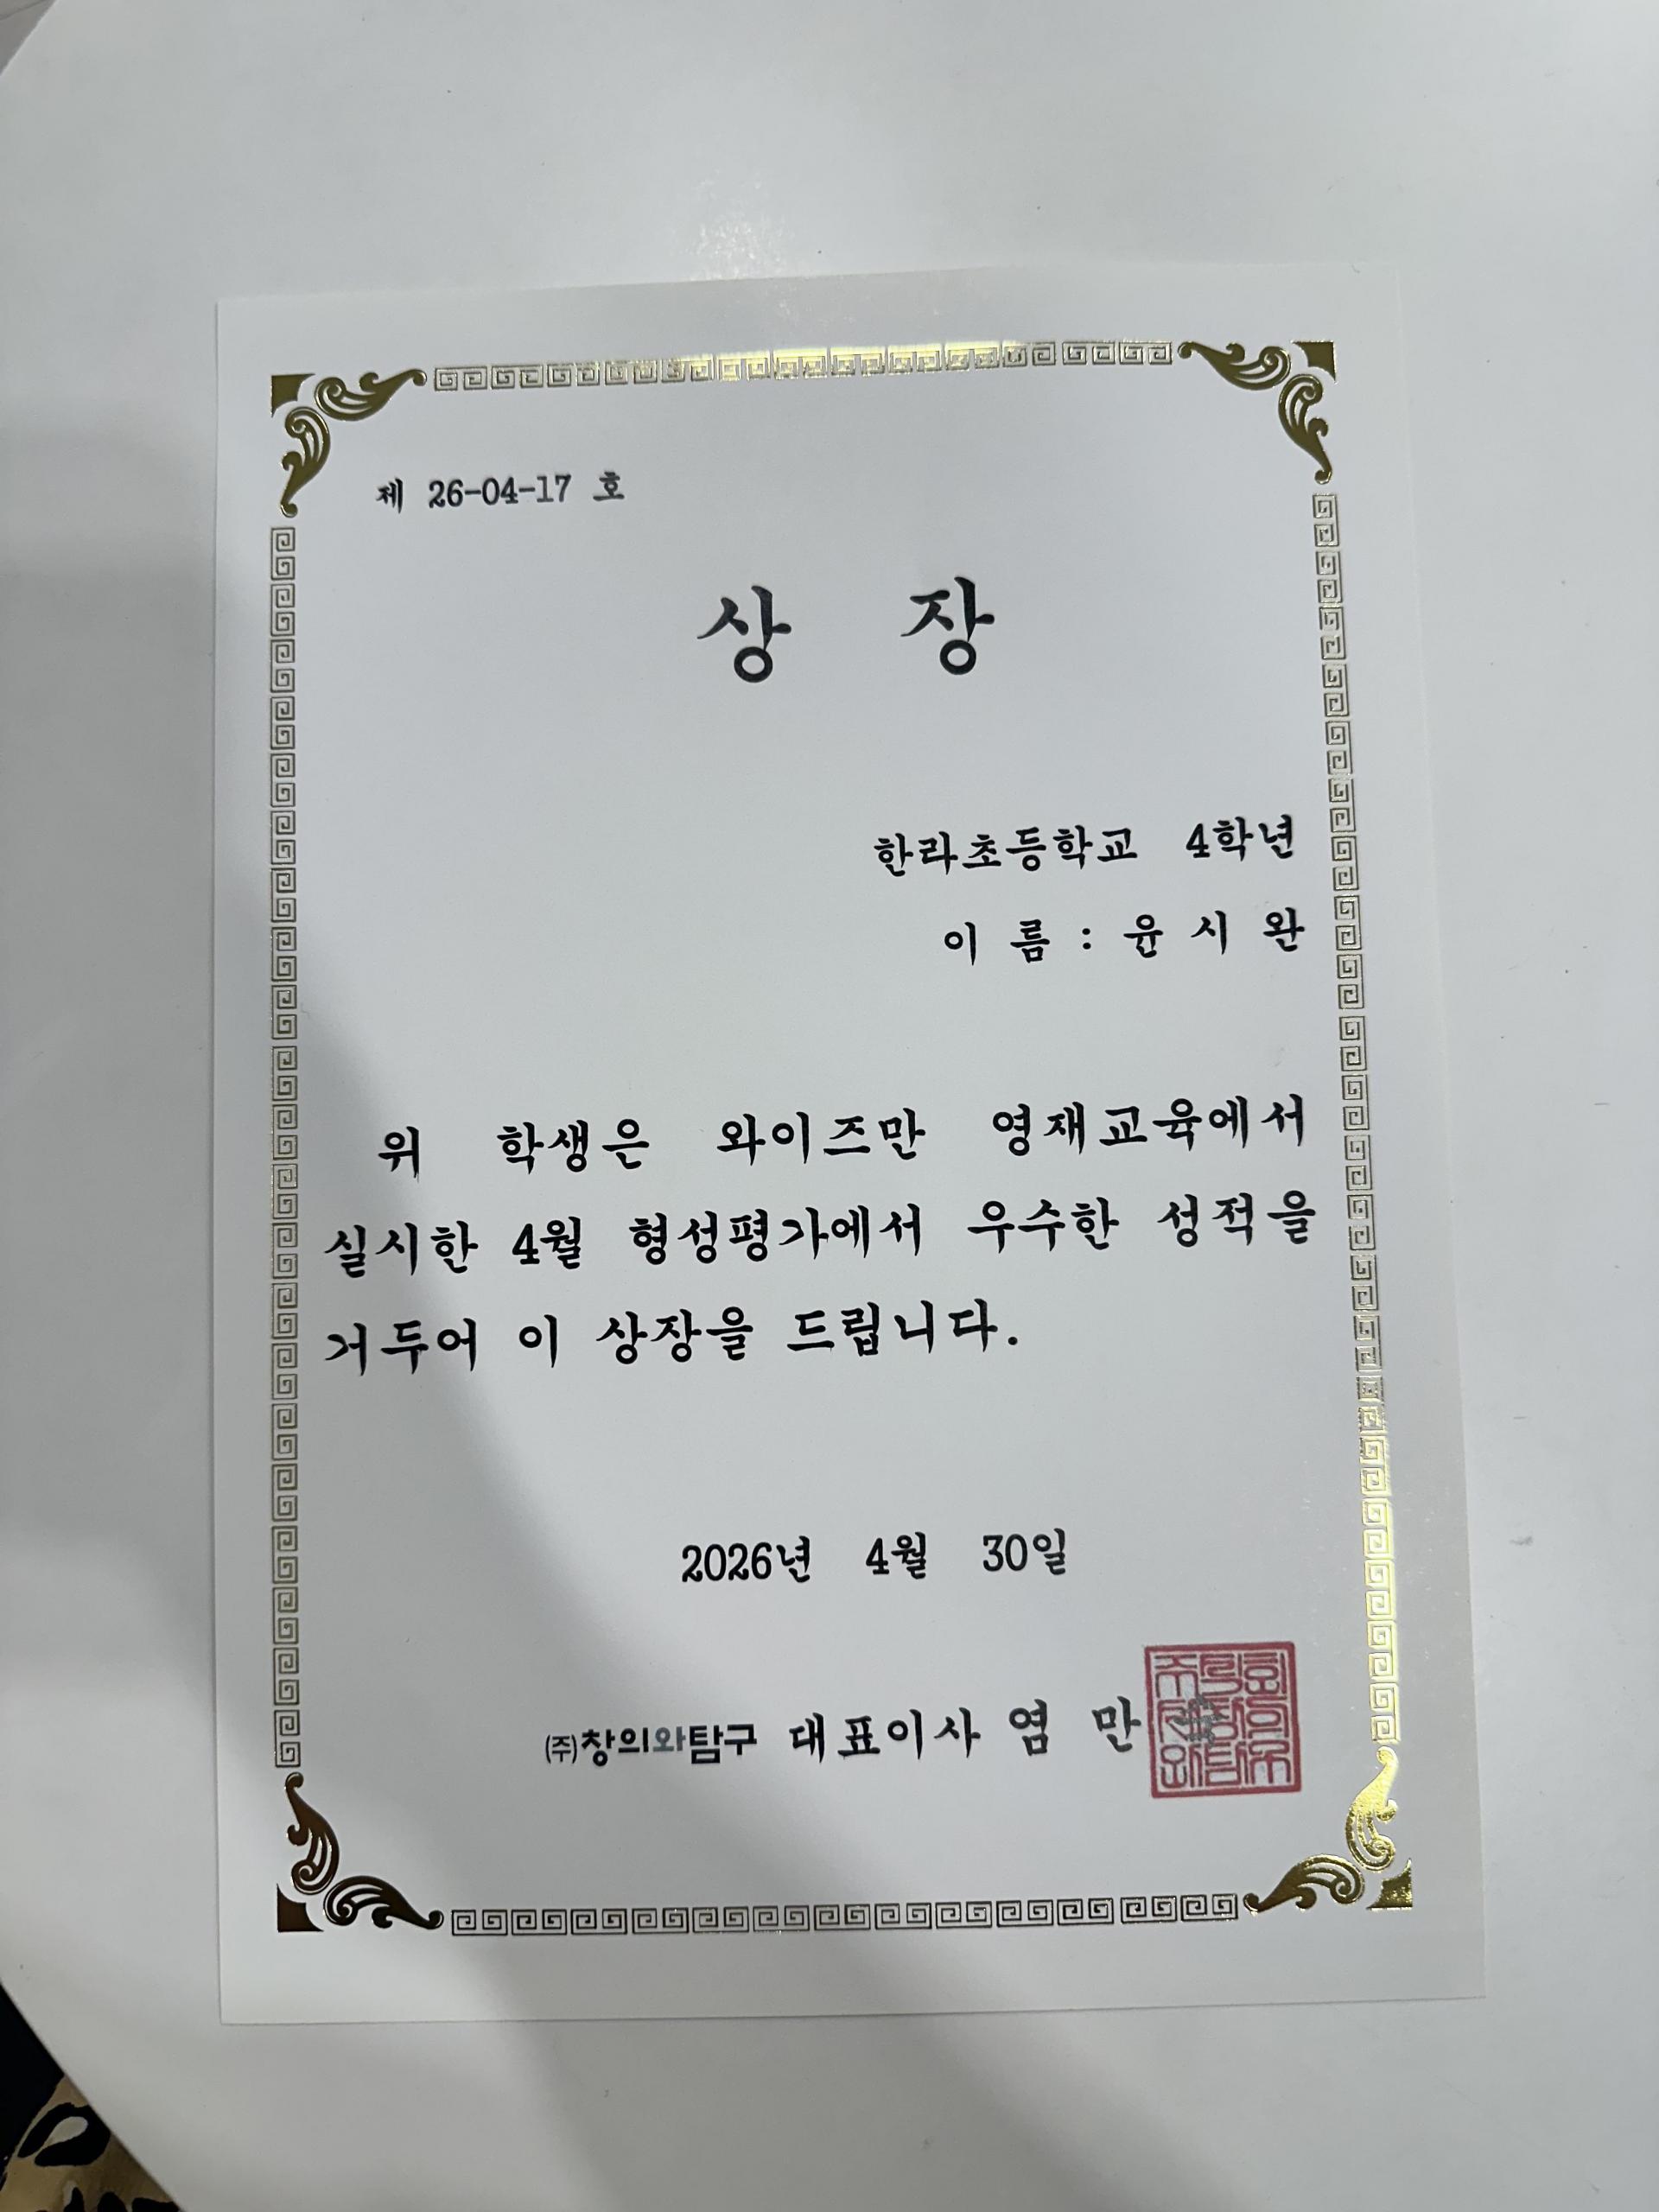 제 26-04-17 호
상 장
한라초등학교 4학년
이 름 : 윤 시 완
위 학생은 와이즈만 영재교육에서
실시한 4월 형성평가에서 우수한 성적을
거두어 이 상장을 드립니다.
2026년 4월 30일
(주)창의와탐구 대표이사 염 만